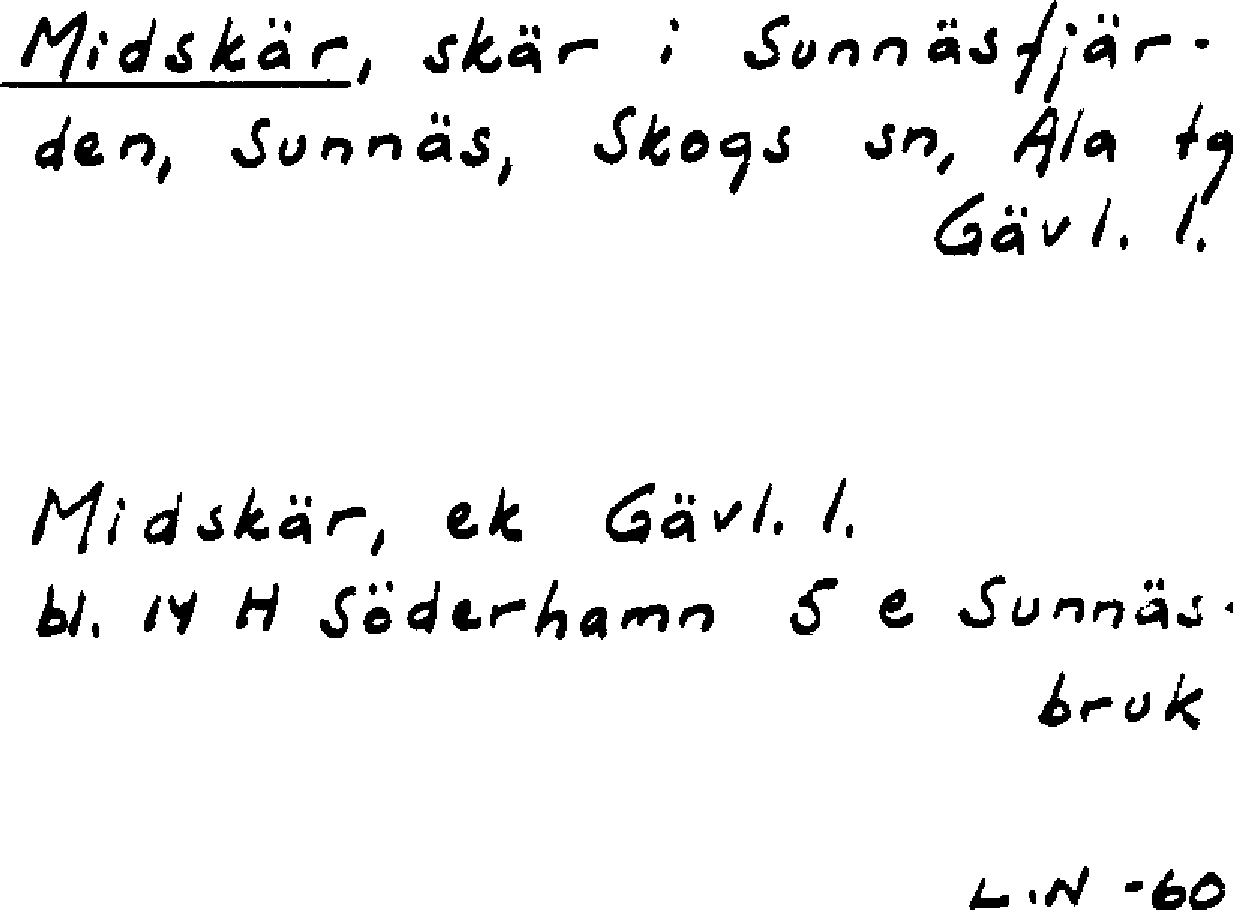 Midskär, skär i Sunnäsfjär-
den, Sunnäs, Skogs sn, Ala tg
Gävl. l.
Midskär, ek Gävl. l.
bl. 14 H Söderhamn 5 e Sunnäs-
bruk
L.N -60